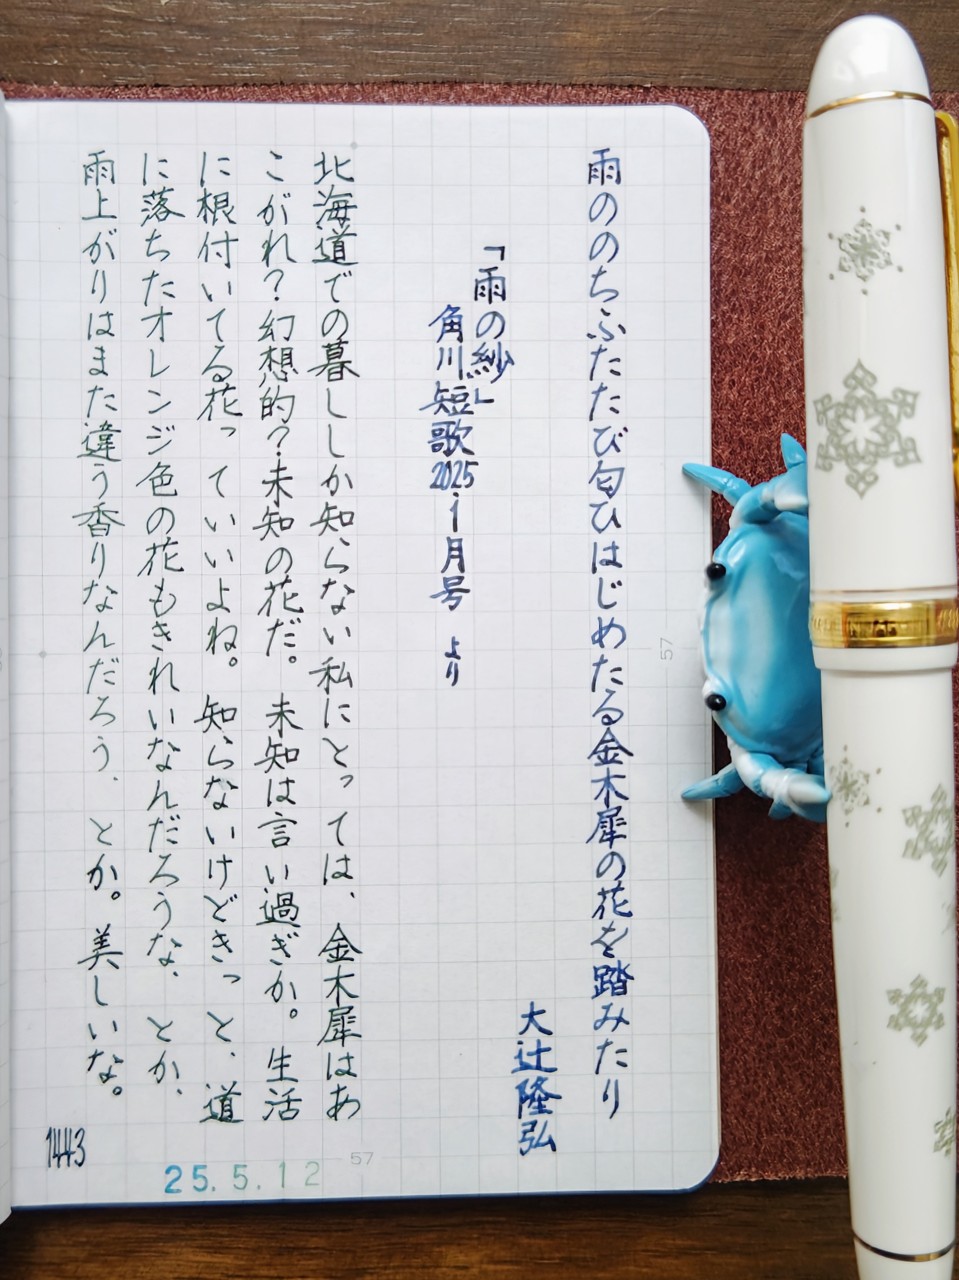 雨ののちふたたび匂ひはじめたる金木犀の花を踏みたり
大辻隆弘
「雨の紗」
角川短歌2025.1月号 より
北海道での暮ししか知らない私にとっては、金木犀はあ
こがれ?幻想的?未知の花だ。未知は言い過ぎか。生活
に根付いてる花っていいよね。知らないけどきっと、道
に落ちたオレンジ色の花もきれいなんだろうな、とか、
雨上がりはまた違う香りなんだろう、とか。美しいな。
1443
25.5.12
57
57